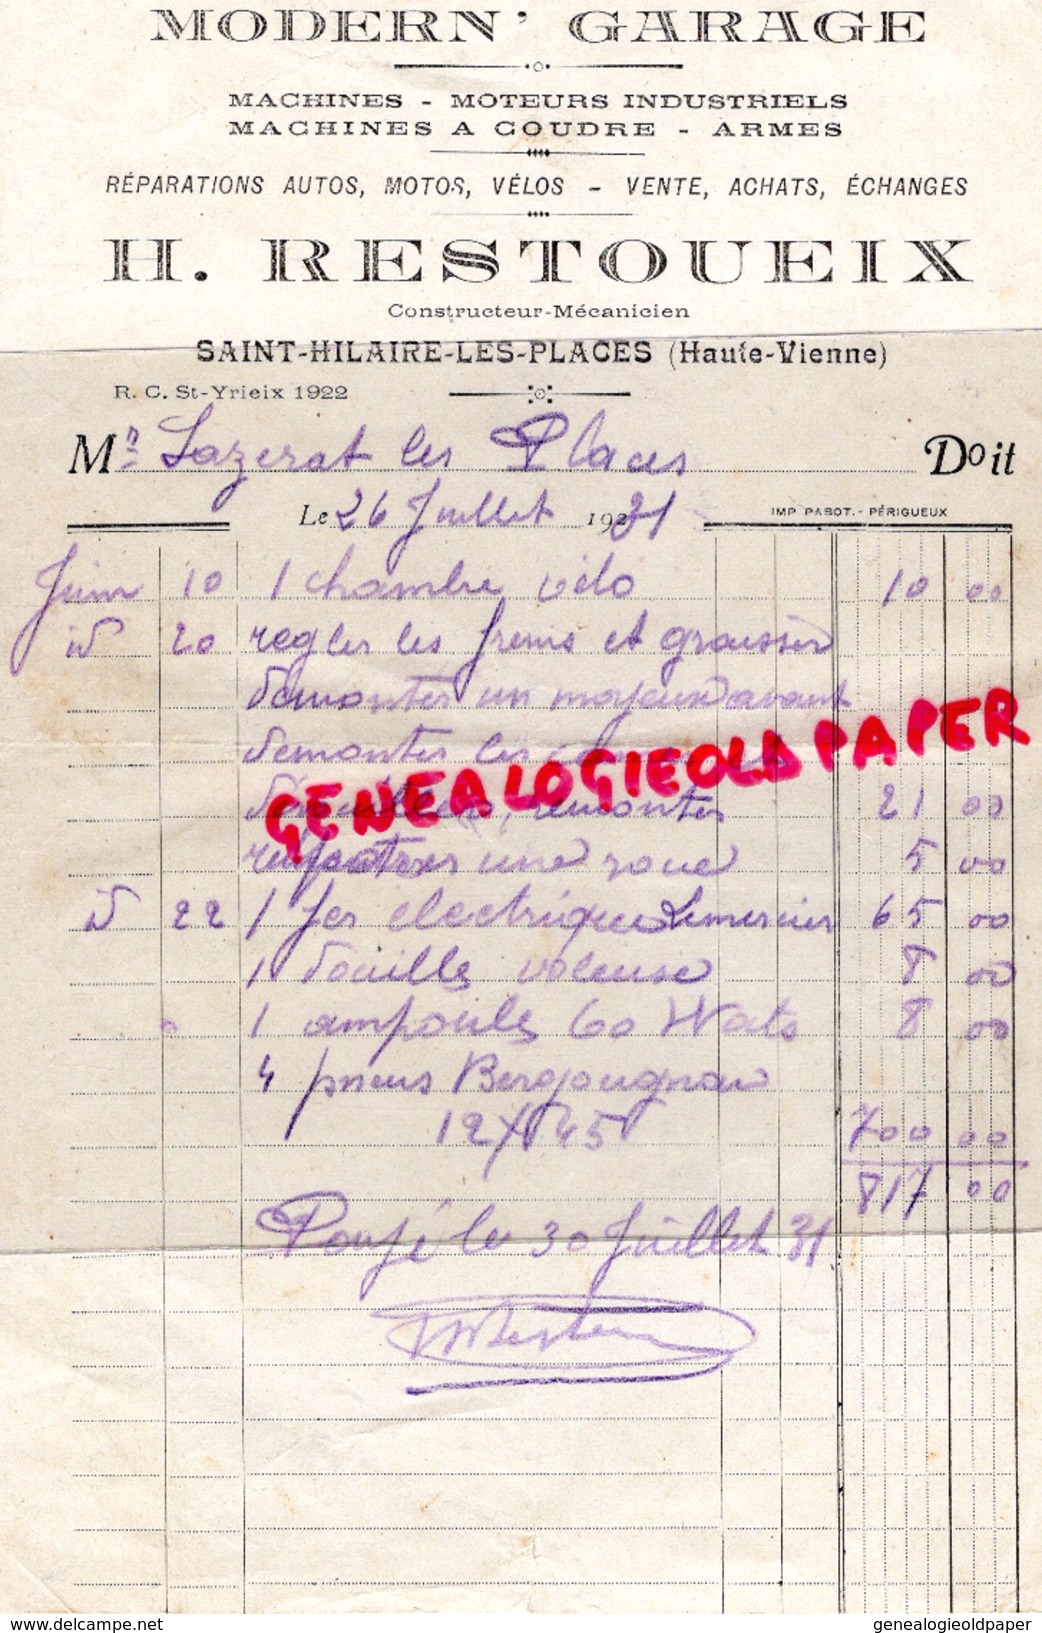 MODERN' GARAGE
MACHINES - MOTEURS INDUSTRIELS
MACHINES A COUDRE - ARMES
RÉPARATIONS AUTOS, MOTOS, VÉLOS - VENTE, ACHATS, ÉCHANGES
H. RESTOUEIX
Constructeur-Mécanicien
SAINT-HILAIRE-LES-PLACES (Haute-Vienne)
R. C. St-Yrieix 1922
Mr Lazerat les Places Doit
Le 26 Juillet 1931
IMP. PABOT. - PÉRIGUEUX
Juin 10 1 chambre vélo 10 00
id 20 regler les freins et graisser
demonter un moyeux avant
demonter les
GENEALOGIEOLDPAPER
remonter 21 00
une roue 5 00
id 22 1 fer electrique Lemercier 65 00
1 douille voleuse 8 00
" 1 ampoule 60 Wats 8 00
4 pneus Bergougnan
12 X 45 700 00
817 00
Payé le 30 Juillet 31
delcampe.net
genealogieoldpaper